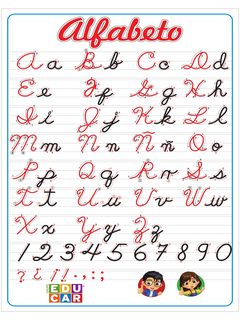 Alfabeto
A a B b C c D d
E e F f G g H h
I i J j K k L l
M m N n Ñ ñ O o
P p Q q R r S s
T t U u V v W w
X x Y y Z z
1 2 3 4 5 6 7 8 9 0
? ¿ ¡ ! . , : ;
EDU
CAR